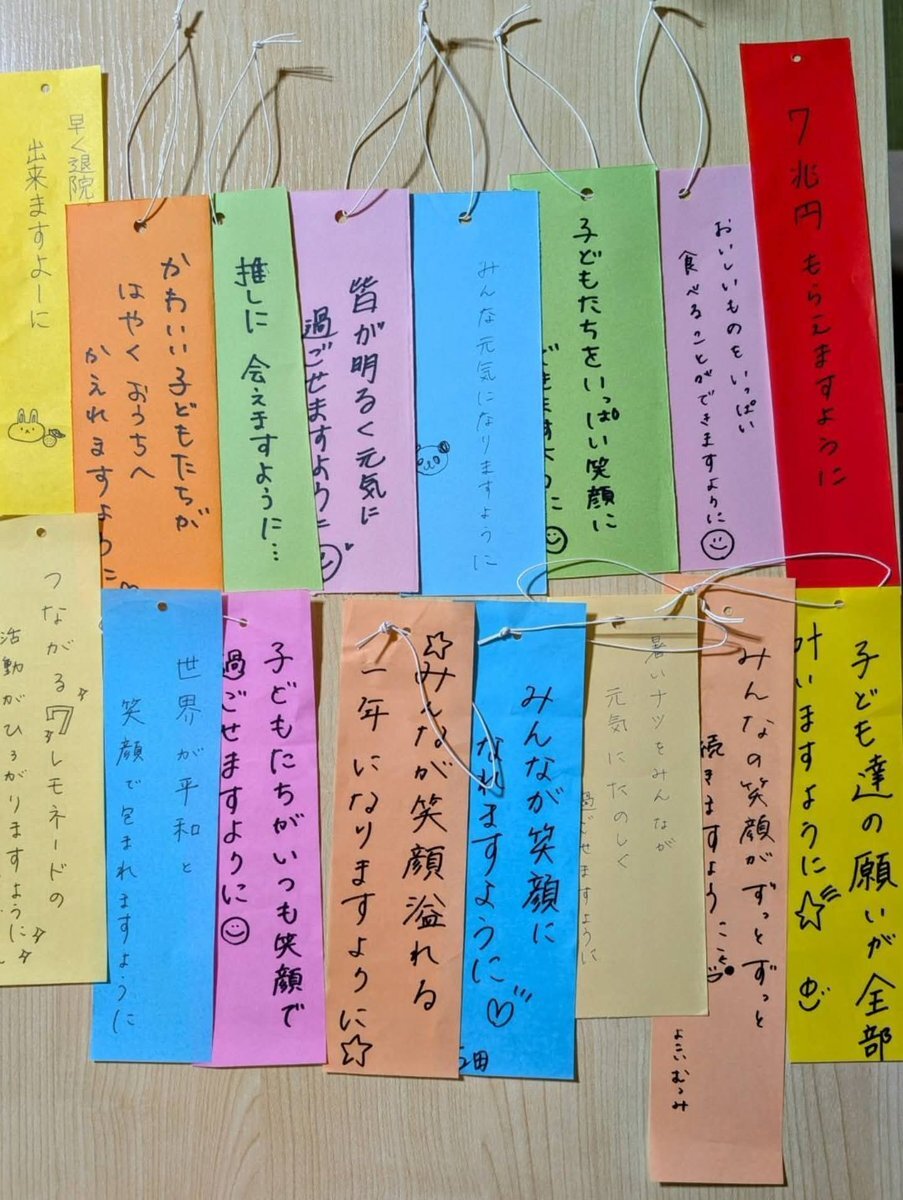 早く退院
出来ますよーに
かわいい子どもたちが
はやく おうちへ
かえれますように
推しに 会えますように…
皆が明るく元気に
過ごせますように
みんな元気になりますように
子どもたちをいっぱい笑顔に
できますように
おいしいものをいっぱい
食べることができますように
7兆円 もらえますように
つながる
レモネードの
活動がひろがりますように
世界が平和と
笑顔で包まれますように
子どもたちがいつも笑顔で
過ごせますように
みんなが笑顔溢れる
一年になりますように
みんなが笑顔に
なれますように
田
暑いナツをみんなが
元気にたのしく
過ごせますように
みんなの笑顔がずっとずっと
続きますよう
よこいむつみ
子ども達の願いが全部
叶いますように